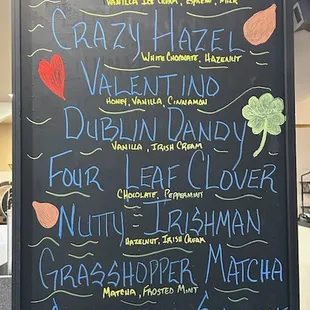 VANILLA ICE CREAM, ESPRESSO, MILK
CRAZY HAZEL
WHITE CHOCOLATE, HAZELNUT
VALENTINO
HONEY, VANILLA, CINNAMON
DUBLIN DANDY
VANILLA, IRISH CREAM
FOUR LEAF CLOVER
CHOCOLATE, PEPPERMINT
NUTTY IRISHMAN
HAZELNUT, IRISH CREAM
GRASSHOPPER MATCHA
MATCHA, FROSTED MINT